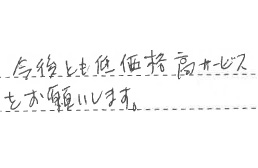 今後とも低価格高サービス
をお願いします。